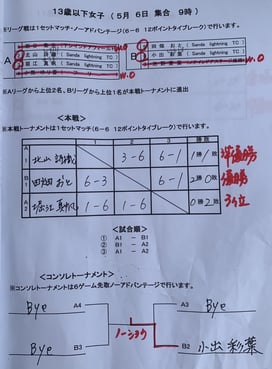 13歳以下女子（5月 6日 集合 9時）
※リーグ戦は1セットマッチ・ノーアドバンテージ（6－6 12ポイントタイブレーク）で行います。
A
W.O
北山 詩織（Sanda lightning TC）
堀江 真帆（Sanda lightning TC）
W.O
B
田畑 おと（Sanda lightning TC）
小出 彩葉（Sanda lightning TC）
W.O
※Aリーグから上位2名、Bリーグから上位1名が本戦トーナメントに進出
＜本戦＞
※本戦トーナメントは1セットマッチ（6－6 12ポイントタイブレーク）で行います。
1 2 3 勝敗
A1 北山 3-6 6-1 1勝1敗 準優勝
B1 田畑 おと 6-3 6-1 2勝0敗 優勝
A2 堀江 1-6 1-6 0勝2敗 3位
＜試合順＞
① A1 － B1
② B1 － A2
③ A1 － A2
＜コンソレトーナメント＞
※コンソレトーナメントは6ゲーム先取ノーアドバンテージで行います。
Bye A4
A3 Bye
ノーショウ
Bye B3
B2 小出 彩葉